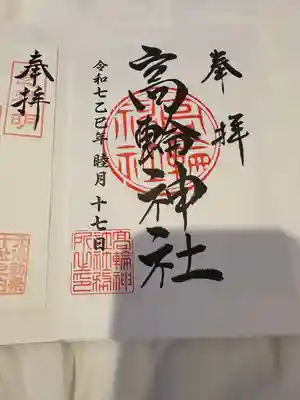 奉拝
高輪神社
令和七乙巳年 睦月 十七日
高輪神
社社務
所之印
奉拝